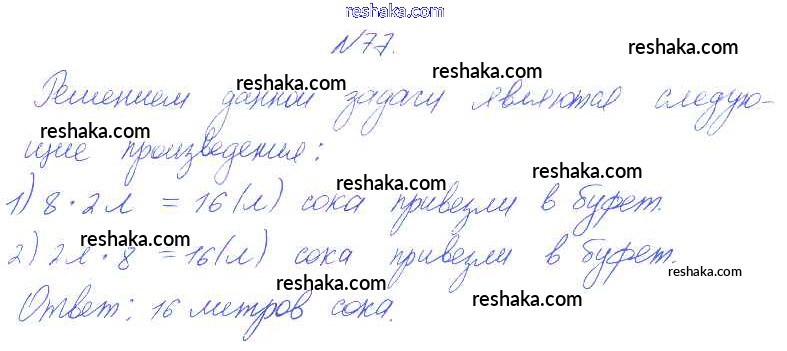 reshaka.com
№77.
reshaka.com
reshaka.com reshaka.com
Решением данной задачи являются следую-
reshaka.com
щие произведения: reshaka.com
1) 8 · 2 л = 16 (л) сока привезли в буфет.
reshaka.com reshaka.com
2) 2 л · 8 = 16 (л) сока привезли в буфет.
reshaka.com reshaka.com
reshaka.com reshaka.com
Ответ: 16 метров сока.